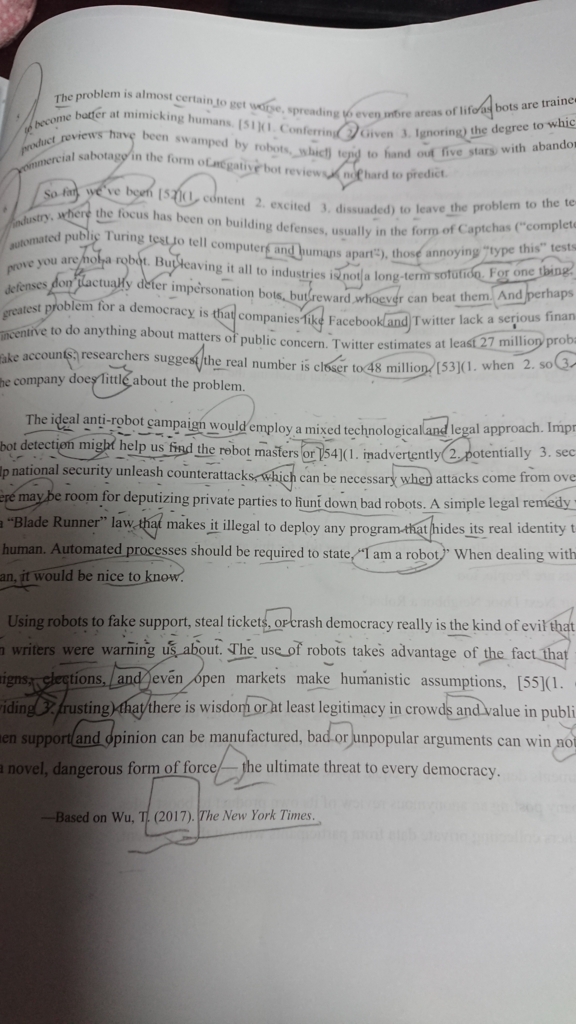 The problem is almost certain to get worse, spreading to even more areas of life as bots are traine
to become better at mimicking humans. [51](1. Conferring 2. Given 3. Ignoring) the degree to whic
product reviews have been swamped by robots, which tend to hand out five stars with abando
commercial sabotage in the form of negative bot reviews is not hard to predict.
So far, we've been [52](1. content 2. excited 3. dissuaded) to leave the problem to the te
industry, where the focus has been on building defenses, usually in the form of Captchas ("complete
automated public Turing test to tell computers and humans apart"), those annoying "type this" tests
prove you are not a robot. But leaving it all to industries is not a long-term solution. For one thing,
defenses don't actually deter impersonation bots, but reward whoever can beat them. And perhaps
greatest problem for a democracy is that companies like Facebook and Twitter lack a serious finan
incentive to do anything about matters of public concern. Twitter estimates at least 27 million proba
fake accounts; researchers suggest the real number is closer to 48 million, [53](1. when 2. so 3.
he company does little about the problem.
The ideal anti-robot campaign would employ a mixed technological and legal approach. Impr
bot detection might help us find the robot masters or [54](1. inadvertently 2. potentially 3. sec
lp national security unleash counterattacks, which can be necessary when attacks come from ove
ere may be room for deputizing private parties to hunt down bad robots. A simple legal remedy
"Blade Runner" law that makes it illegal to deploy any program that hides its real identity t
human. Automated processes should be required to state, "I am a robot." When dealing with
an, it would be nice to know.
Using robots to fake support, steal tickets, or crash democracy really is the kind of evil that
n writers were warning us about. The use of robots takes advantage of the fact that
igns, elections, and even open markets make humanistic assumptions, [55](1.
iding 3. trusting) that there is wisdom or at least legitimacy in crowds and value in publi
en support and opinion can be manufactured, bad or unpopular arguments can win not
a novel, dangerous form of force — the ultimate threat to every democracy.
—Based on Wu, T. (2017). The New York Times.